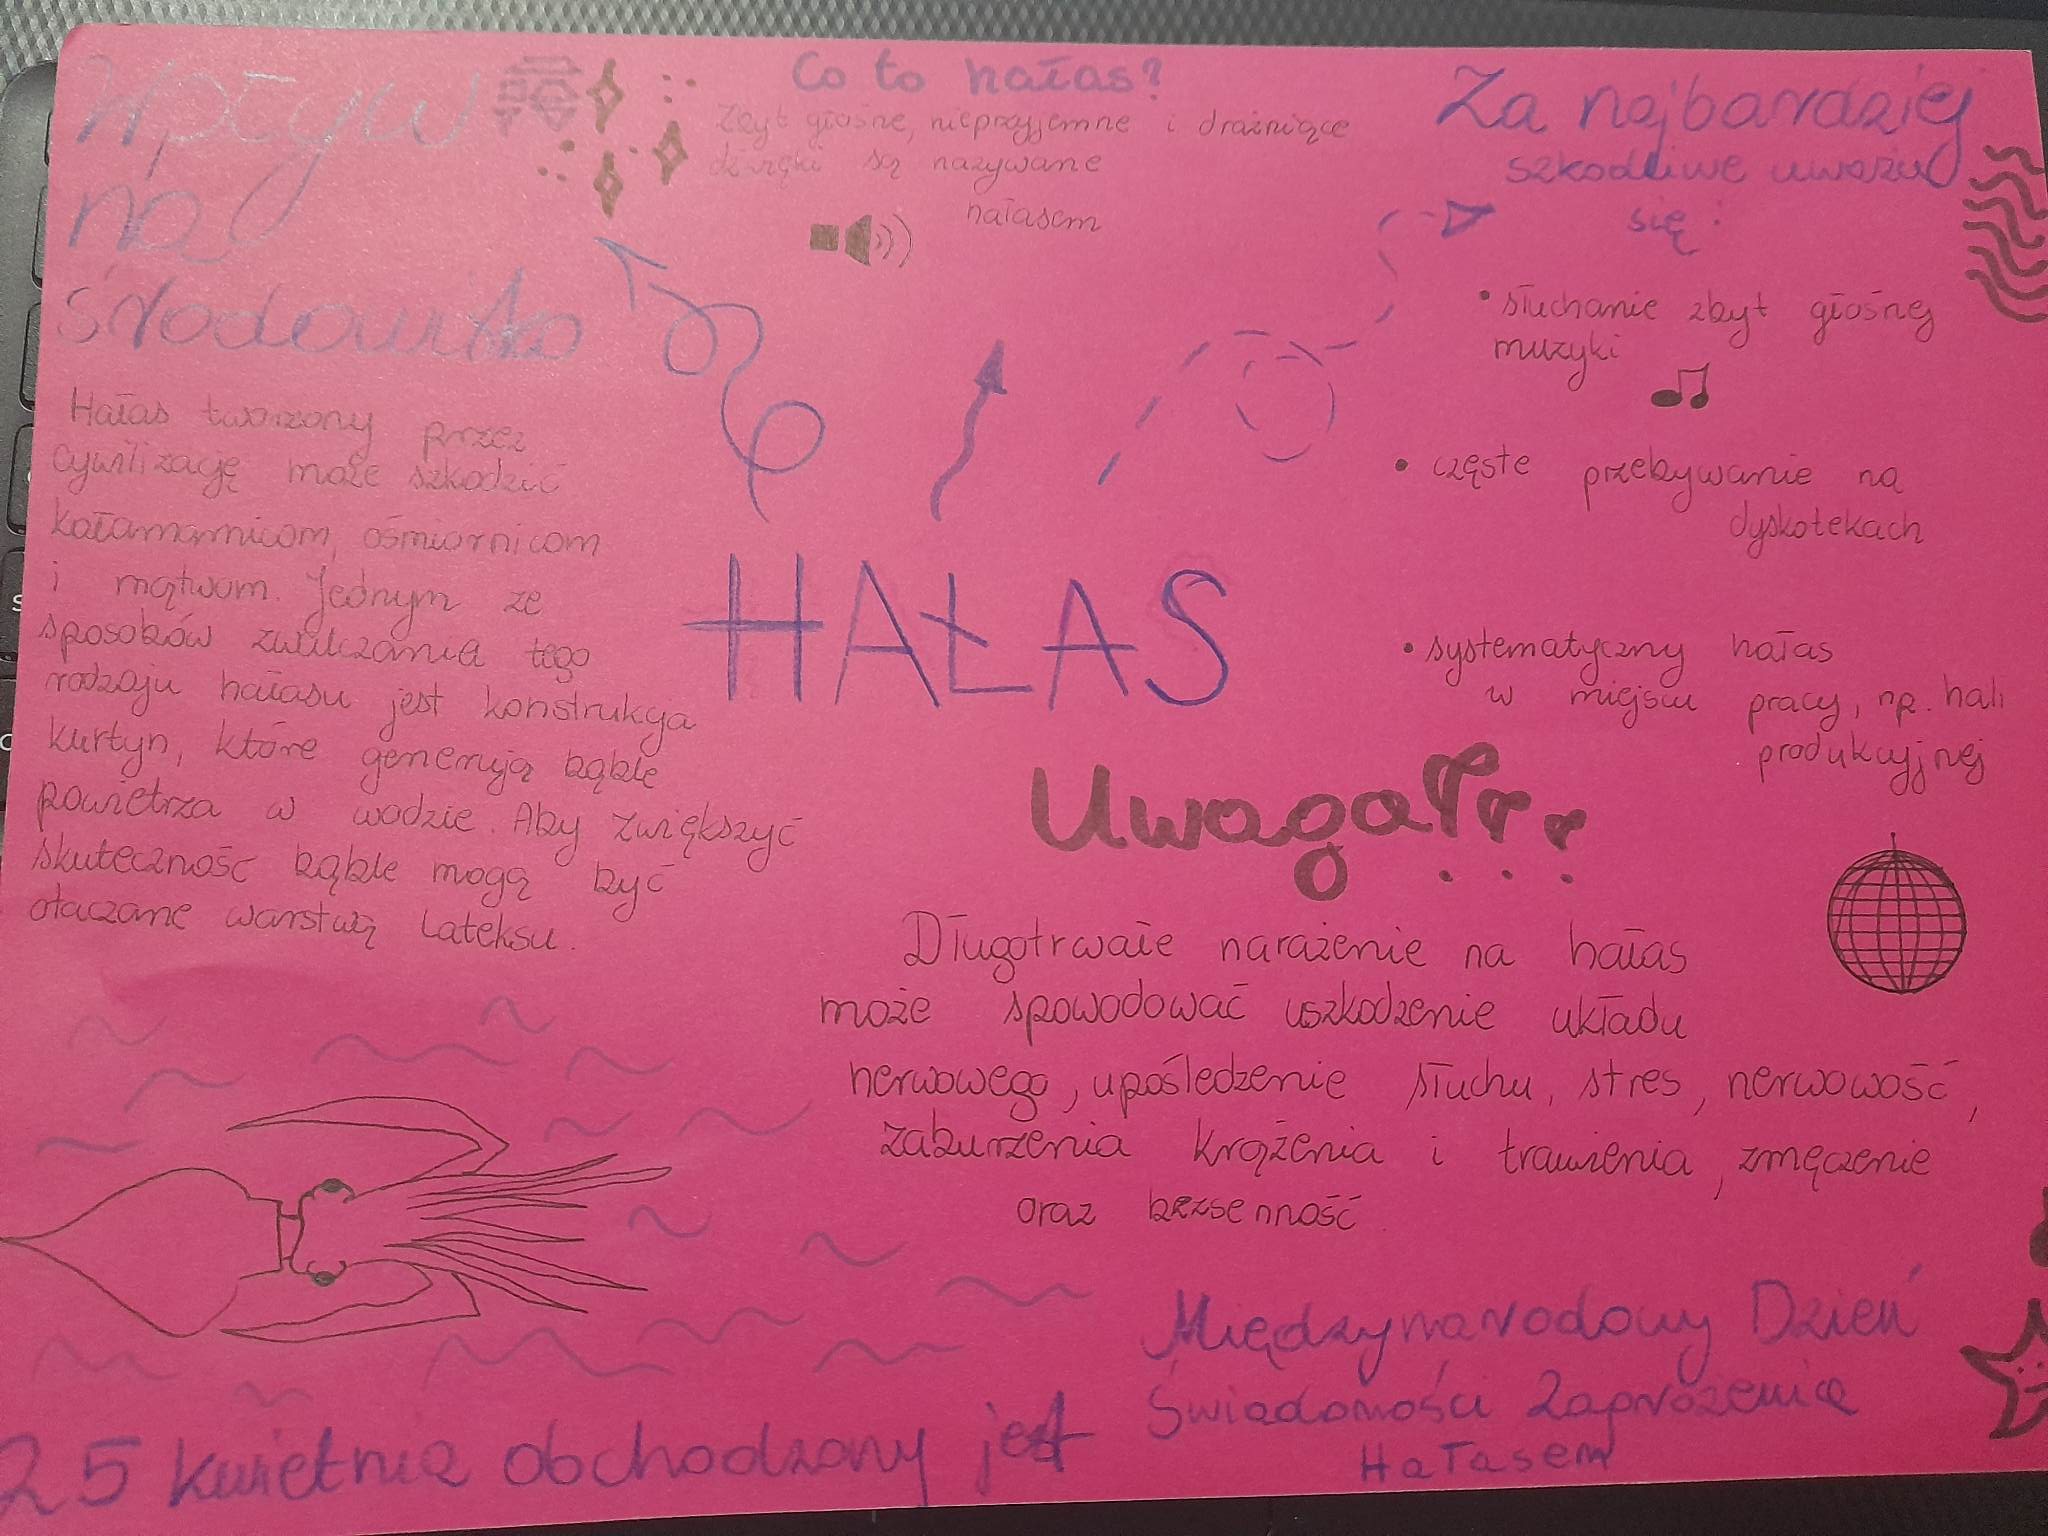 Wpływ
na
środowisko
Hałas tworzony przez
cywilizację może szkodzić
kałamarnicom, ośmiornicom
i mątwom. Jednym ze
sposobów zwalczania tego
rodzaju hałasu jest konstrukcja
kurtyn, które generują bąble
powietrza w wodzie. Aby zwiększyć
skuteczność bąble mogą być
otaczane warstwą lateksu.
Co to hałas?
Zbyt głośne, nieprzyjemne i drażniące
dźwięki są nazywane
hałasem
HAŁAS
Za najbardziej
szkodliwe uważa
się:
• słuchanie zbyt głośnej
muzyki
• częste przebywanie na
dyskotekach
• systematyczny hałas
w miejscu pracy, np. hali
produkcyjnej
Uwaga!!!
Długotrwałe narażenie na hałas
może spowodować uszkodzenie układu
nerwowego, upośledzenie słuchu, stres, nerwowość,
zaburzenia krążenia i trawienia, zmęczenie
oraz bezsenność.
25 kwietnia obchodzony jest
Międzynarodowy Dzień
Świadomości Zagrożenia
Hałasem